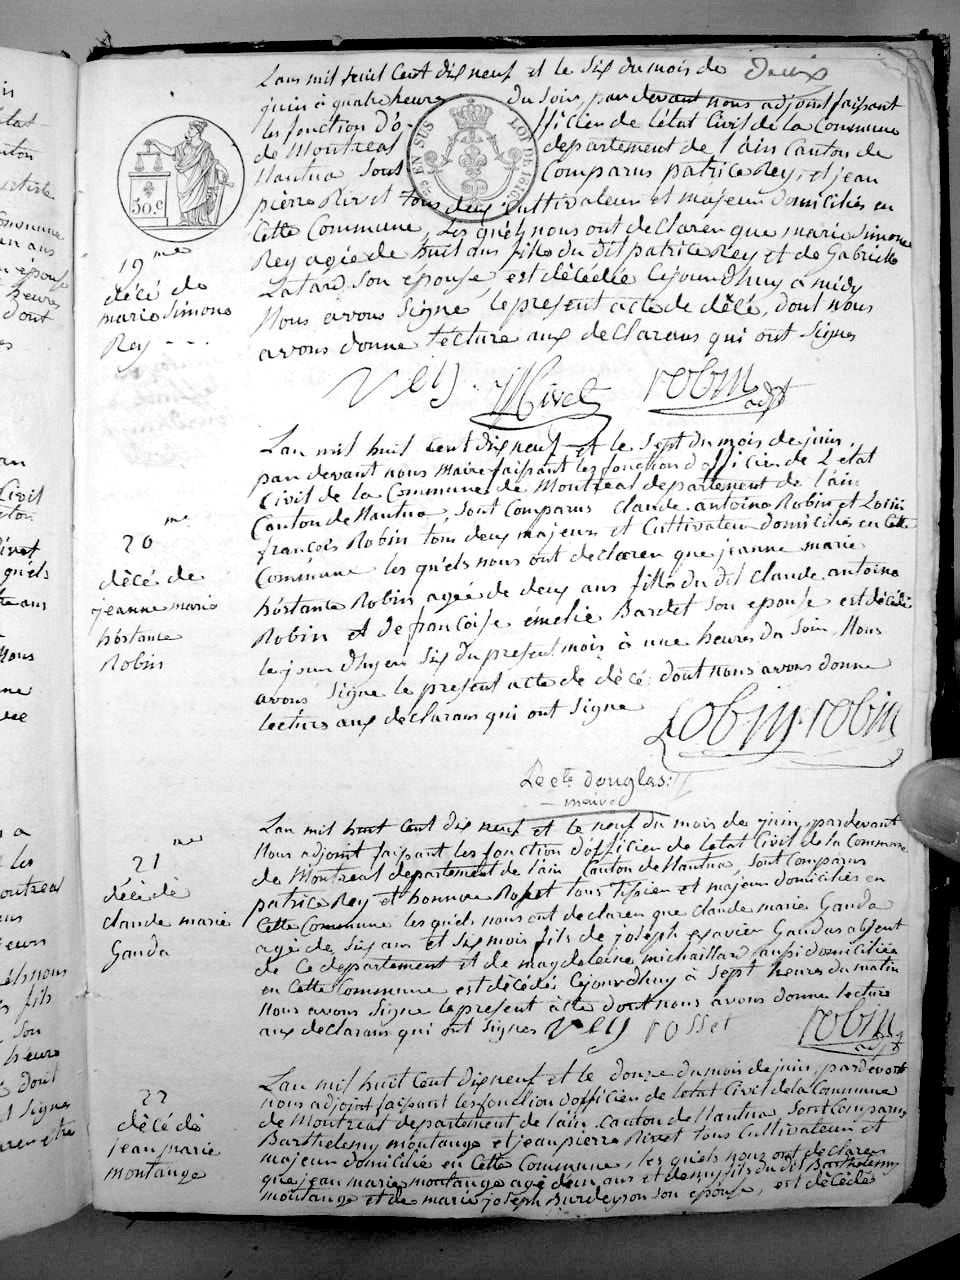 Lan mil huit Cent dix neuf et le six du mois de
juin à quatre heures du soir, par devant nous adjoint faisant
les fonction d'officier de l'état Civil de la Commune
de Montreal departement de l'ain Canton de
Nantua Sont Comparus patrice Rey, et jean
pierre Rivet tous deux Cultivateurs et majeur domiciliés en
Cette Commune, Les quéls nous ont declaren que marie Simone
Rey agée de huit ans fille du dit patrice Rey et de Gabrielle
Latard son epouse, est décédée Cejourdhuy à midy
Nous avons Signe le present acte de décé, dont nous
avons donne lecture aux declarans qui ont Signes
EN SUS
LOI DE 1816
50 c
19 me
décé de
marie Simone
Rey - - -
Rey Rivet robin
adjt
Lan mil huit Cent dix neuf et le sept du mois de juin,
par devant nous Maire faisant les fonction d'officier de L'état
Civil de la Commune de Montreal departement de l'ain
Canton de Nantua Sont Comparus Claude antoine Robin et
françois Robin tous deux majeurs et Cultivateur domicilies en Cette
Commune les quéls nous ont declaren que jeanne marie
hostance Robin agée de deux ans fille du dit Claude antoine
Robin et de françoise émelie Bardet son epouse est décédée
le jour dhyer six du present mois à une heures du Soir, Nous
avons Signe le present acte de décé dont nous avons donne
lecture aux declarans qui ont Signe
20 me
décé de
jeanne marie
hostance
Robin
Robin robin
Le cte douglas
Lan mil huit Cent dix neuf et le neuf du mois de juin, pardevant
Nous adjoint faisant les fonction d'officier de Letat Civil de la Commune
de Montreal departement de l'ain Canton de Nantua, sont Comparus
patrice Rey et honnore Rosset tous Tissier et majeur domiciliés en
Cette Commune les quéls nous ont declaren que Claude marie Ganda
agé de Six ans et Six mois fils de joseph exavier Gandas absent
de Ce departement et de magdeleine michaillard aussi domiciliée
en Cette Commune est décédés Cejourdhuy à Sept heures du matin
Nous avons Signe le present acte dont nous avons donne lecture
aux declarans qui ont signes Rey rosset robin
adjt
21 me
décé de
claude marie
Ganda
Lan mil huit Cent dix neuf et le douze du mois de juin, pardevant
nous adjoint faisant les fonction d'officier de Letat Civil de la Commune
de Montreal departement de l'ain, Canton de Nantua, Sont Comparus
Barthelemy montange et jean pierre Rivet tous Cultivateur et
majeur domicilié en Cette Commune, les quéls nous ont declaren
que jean marie montange agé dun ans et demy fils du dit Barthelemy
montange et de marie joseph Burdeyson son epouse, est décédés
22
décé de
jean marie
montange